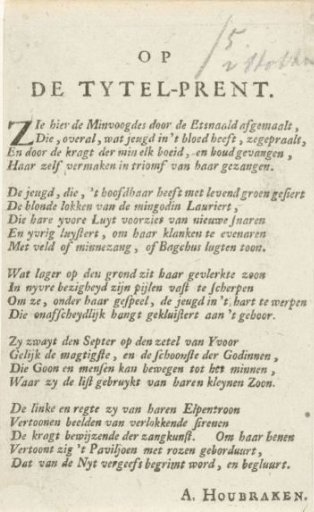 OP
DE TYTEL-PRENT.
ZIe hier de Minvoogdes door de Etsnaald afgemaalt,
Die, overal, wat jeugd in 't bloed heeft, zegepraalt,
En door de kragt der min elk boeid, en houd gevangen,
Haar zelf vermaken in triomf van haar gezangen.
De jeugd, die, 't hoofdhaar heeft met levend groen gesiert
De blonde lokken van de mingodin Lauriert,
Die hare yvore Luyt voorzies van nieuwe snaren
En yvrig luystert, om haar klanken te evenaren
Met veld of minnezang, of Bagchus lugten toon.
Wat lager op den grond zit haar gevlerkte zoon
In nyvre bezigheyd zijn pijlen vast te scherpen
Om ze, onder haar gespeel, de jeugd in 't hart te werpen
Die onaffcheydlijk hangt gekluistert aan 't gehoor.
Zy zwayt den Septer op den zetel van Yvoor
Gelijk de magtigste, en de schoonste der Godinnen,
Die Goon en mensen kan bewegen tot het minnen,
Waar zy de list gebruykt van haren kleynen Zoon.
De linke en regte zy van haren Elpentroon
Vertoonen beelden van verlokkende sirenen
De kragt bewijzende der zangkunst. Om haar henen
Vertoont zig 't Paviljoen met rozen geborduurt,
Dat van de Nyt vergeefs begrimt word, en begluurt.
A. HOUBRAKEN.